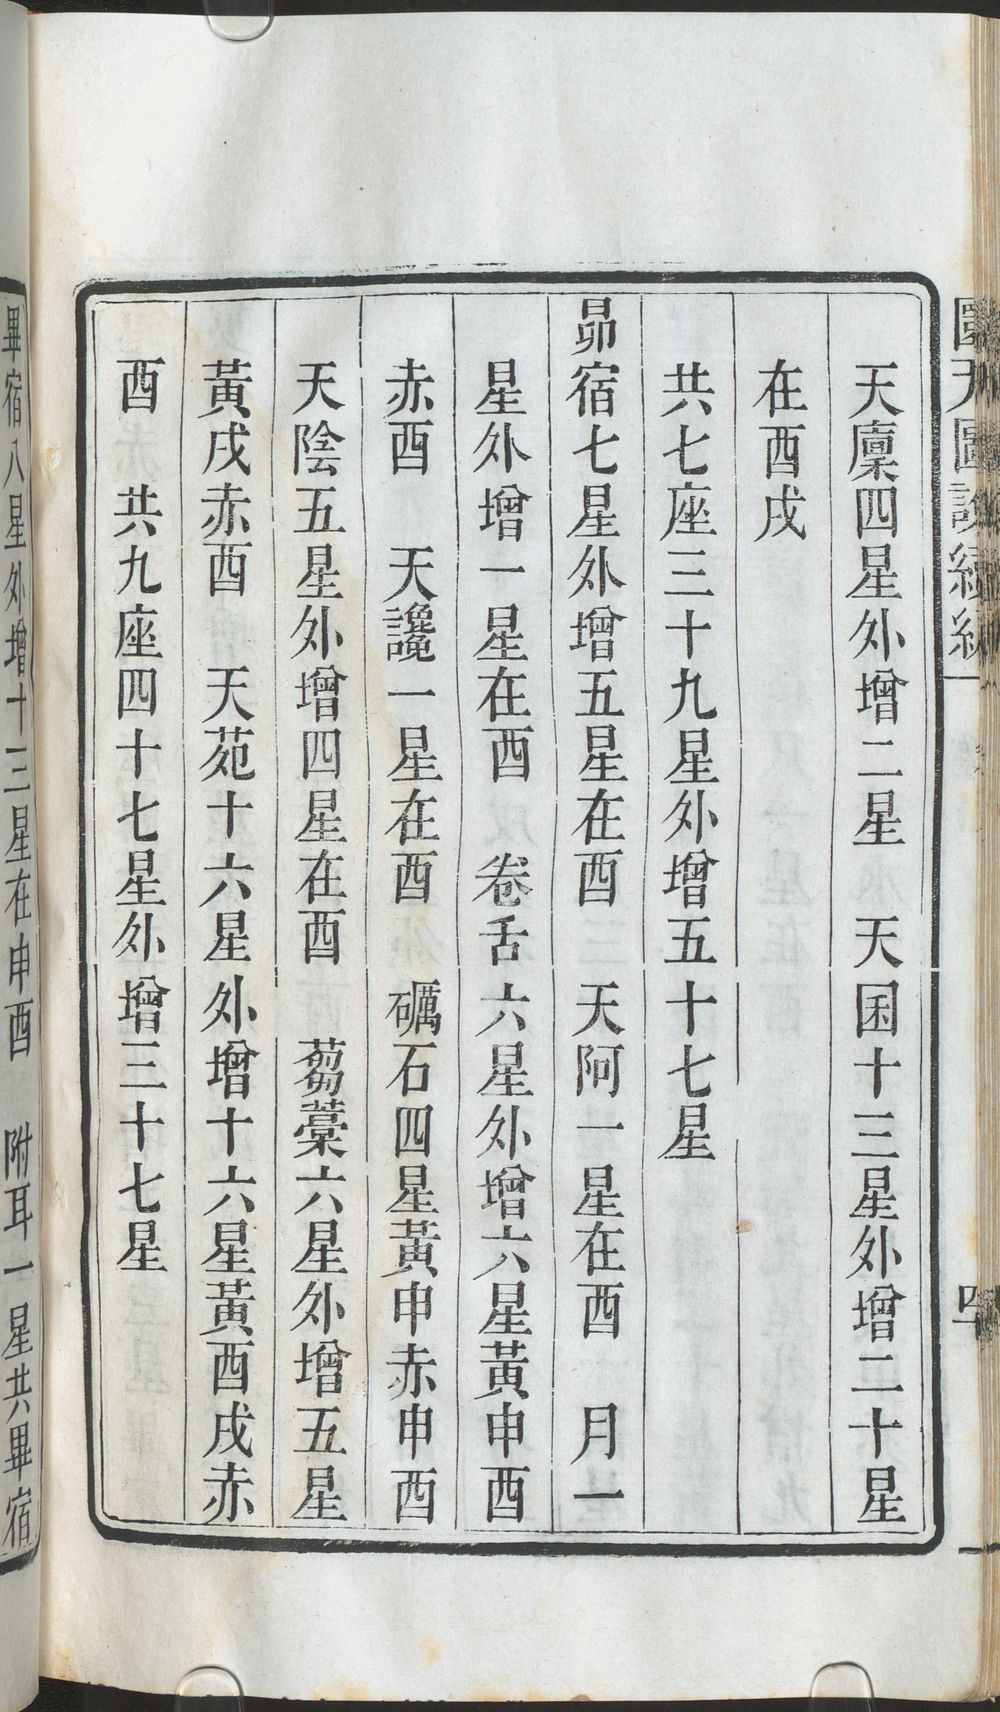 圜天圖說續編
四
天廩四星外增二星　天囷十三星外增二十星
在酉戌
共七座三十九星外增五十七星
昴宿七星外增五星在酉　天阿一星在酉　月一
星外增一星在酉　卷舌六星外增六星黃申酉
赤酉　天讒一星在酉　礪石四星黃申赤申酉
天陰五星外增四星在酉　蒭藁六星外增五星
黃戌赤酉　天苑十六星外增十六星黃酉戌赤
酉　共九座四十七星外增三十七星
畢宿八星外增十三星在申酉　附耳一星共畢宿